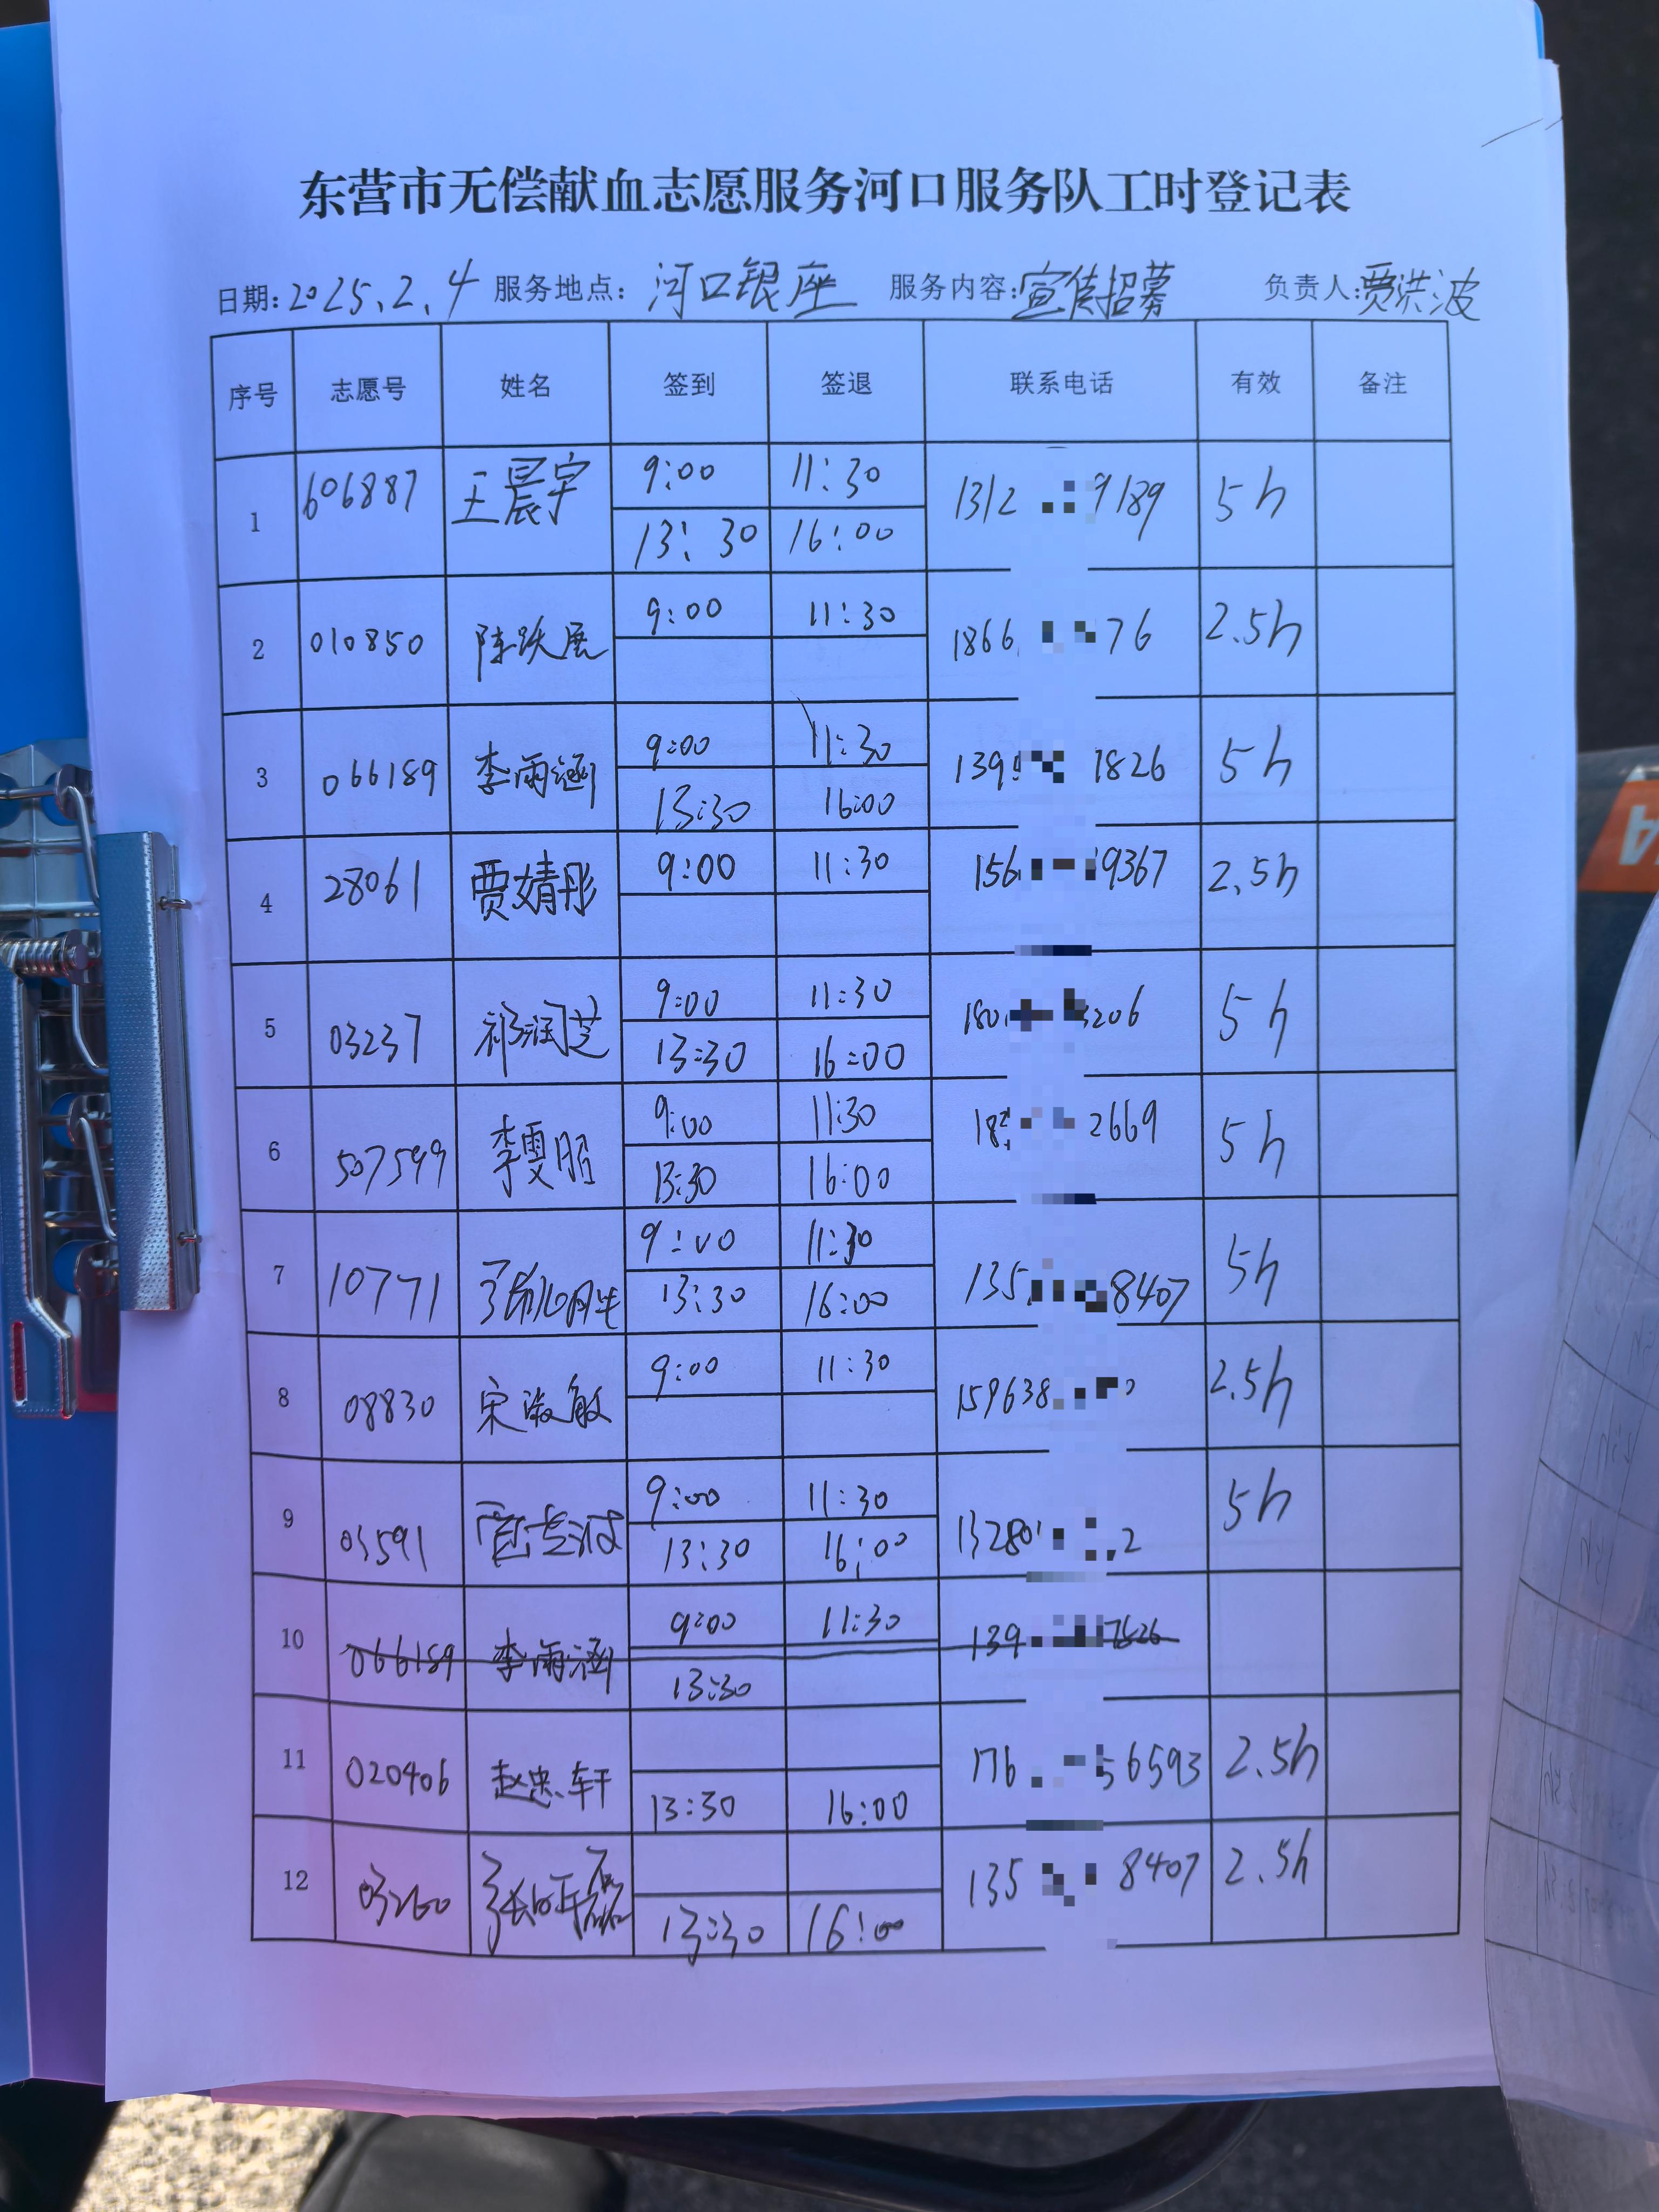 东营市无偿献血志愿服务河口服务队工时登记表
日期:2025.2.4 服务地点: 河口银座 服务内容:宣传招募 负责人:贾洪波
序号 志愿号 姓名 签到 签退 联系电话 有效 备注
1 606887 王晨宇 9:00 11:30 1312 9189 5h
13:30 16:00
2 010850 陈跃展 9:00 11:30 1866 76 2.5h
3 066189 李雨涵 9:00 11:30 139 1826 5h
13:30 16:00
4 28061 贾婧彤 9:00 11:30 156 9367 2.5h
5 03237 祁润芝 9:00 11:30 180 206 5h
13:30 16:00
6 507599 李雯 9:00 11:30 18 2669 5h
13:30 16:00
7 10771 9:00 11:30 135 8407 5h
13:30 16:00
8 08830 宋淑敏 9:00 11:30 159638 2.5h
9 03591 9:00 11:30 13280 2 5h
13:30 16:00
10 066189 李雨涵 9:00 11:30 139 1826
13:30
11 020406 赵忠轩 176 56593 2.5h
13:30 16:00
12 03260 135 8407 2.5h
13:30 16:00